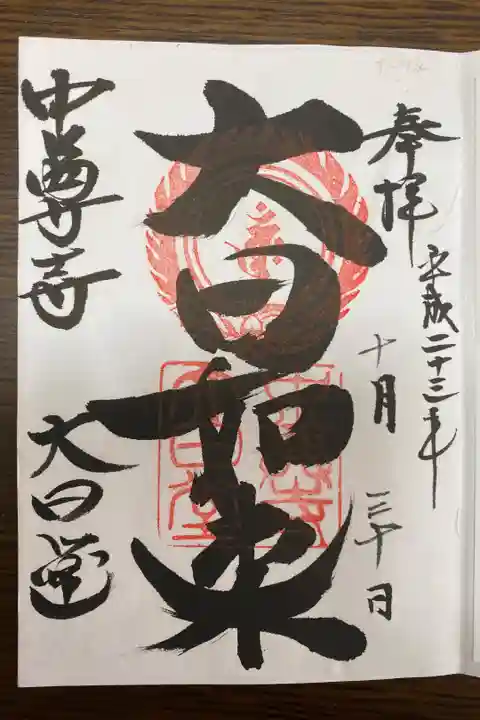 奉拝
平成二十三年
十月 三十日
大日如来
中尊寺
大日堂